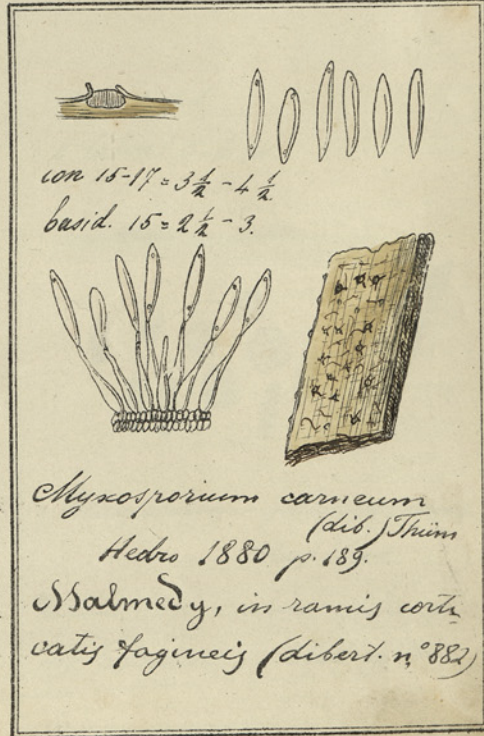 con 15-17 = 3 1/2 - 4 1/2.
basid. 15 = 2 1/2 - 3.
Myxosporium carneum
(dib.) Thüm
Hedw 1880 p. 189.
Malmedy, in ramis corti
catis fagineis (dibert. n° 882)